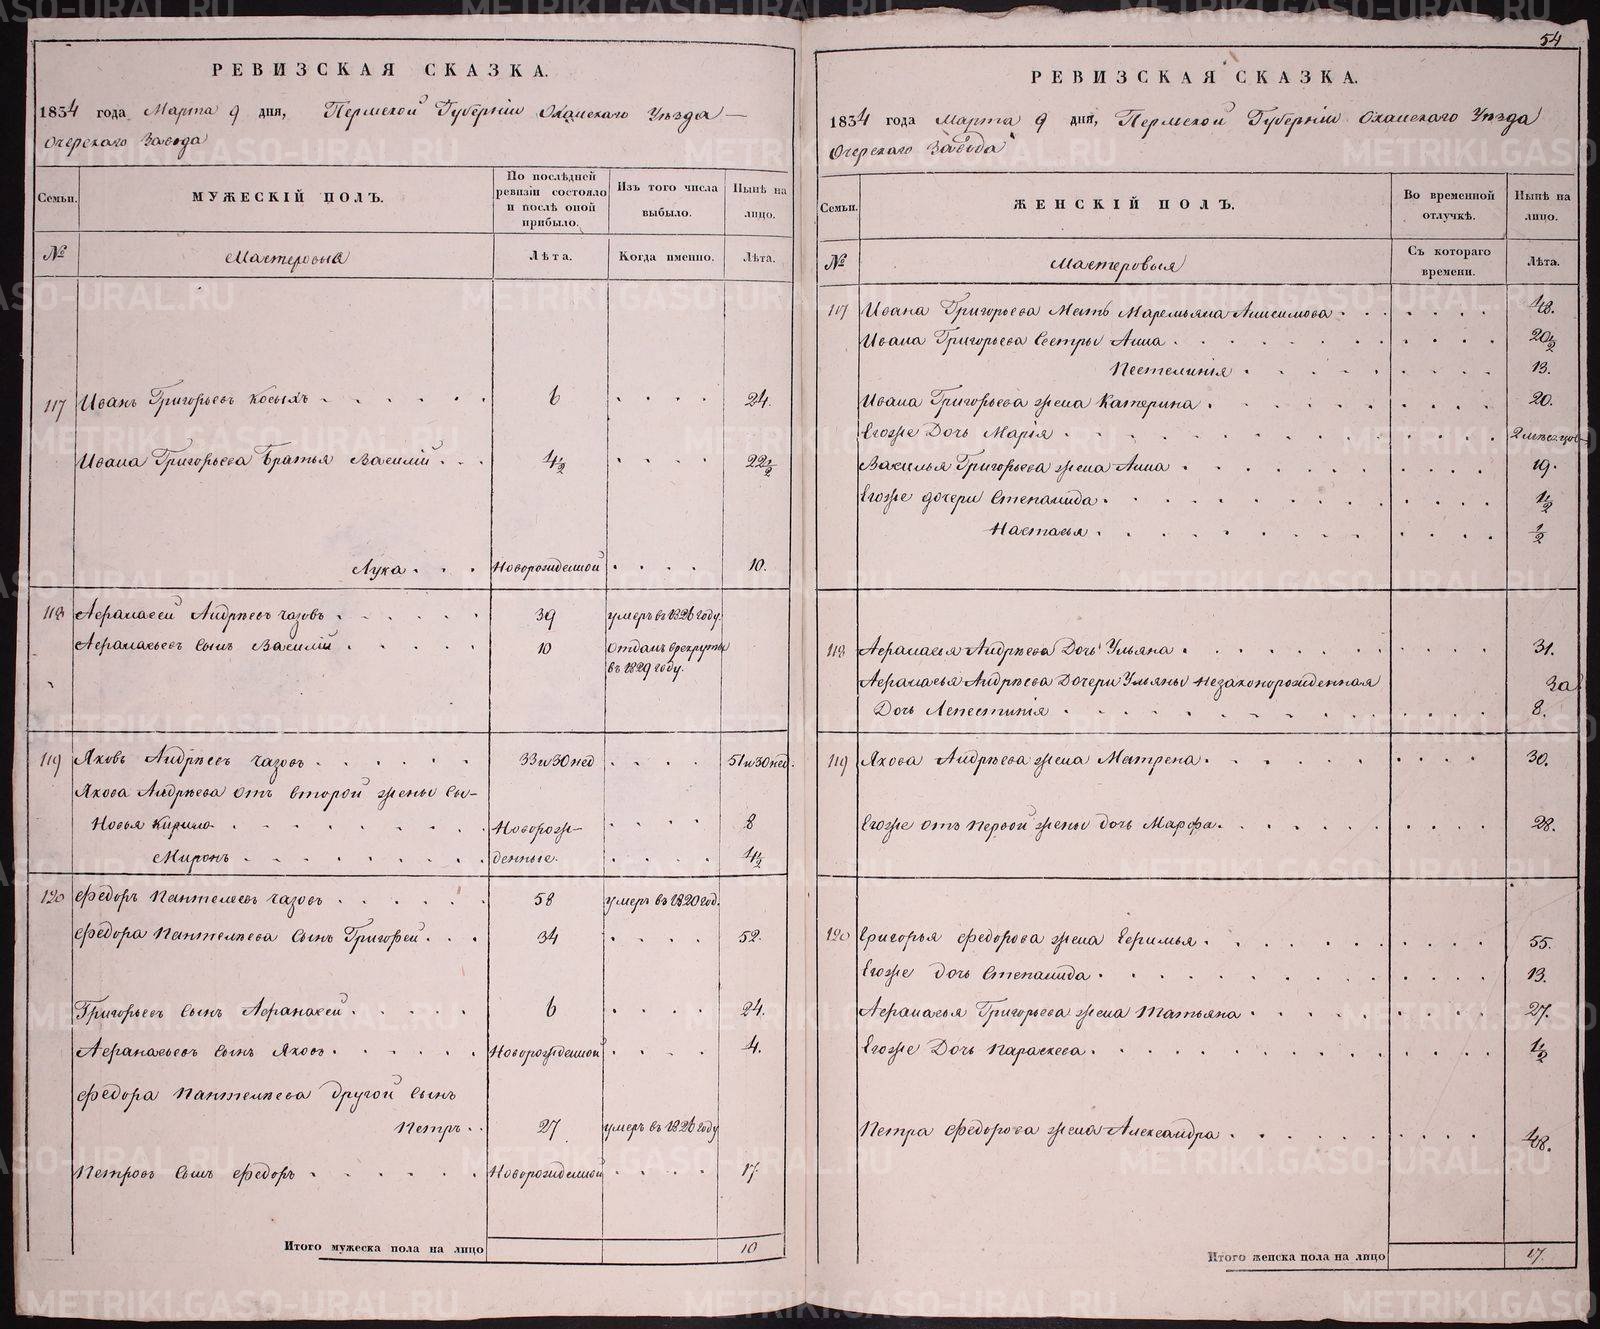 РЕВИЗСКАЯ СКАЗКА.
1834 года Марта 9 дня, Пермской Губерніи Оханскаго Уѣзда
Очерскаго Завода
Семьи.
МУЖЕСКІЙ ПОЛЪ.
По послѣдней ревизіи состояло и послѣ оной прибыло.
Изъ того числа выбыло.
Нынѣ на лицо.
№ Мастеровыя Лѣта. Когда именно. Лѣта.
117 Иванъ Григорьевъ Косыхъ 6 24.
Ивана Григорьева Братья Василій 4½ 22½
Лука Новорожденной 10.
118 Афанасей Андрѣевъ Чазовъ 39 умеръ въ 1826 году.
Афанасьевъ Сынъ Василій 10 Отданъ врекруты
въ 1829 году.
119 Яковъ Андрѣевъ Чазовъ 33 и 30 нед 51 и 30 нед.
Якова Андрѣева отъ второй жены Сы-
новья Кирило Новорож- 8
Миронъ денные. 4½
120 Федоръ Пантелеевъ Чазовъ 58 умеръ въ 1820 год.
Федора Пантелѣева Сынъ Григорей 34 52.
Григорьевъ Сынъ Афанасей 6 24.
Афанасьевъ Сынъ Яковъ Новорожденной 4.
Федора Пантелѣева другой Сынъ
Петръ 27 умеръ въ 1826 году
Петровъ Сынъ Федоръ Новорожденной 17.
Итого мужеска пола на лицо 10
54
РЕВИЗСКАЯ СКАЗКА.
1834 года Марта 9 дня, Пермской Губерніи Оханскаго Уѣзда
Очерскаго Завода
Семьи.
ЖЕНСКІЙ ПОЛЪ.
Во временной отлучкѣ.
Нынѣ на лицо.
№ Мастеровыя Съ котораго времени. Лѣта.
117 Ивана Григорьева Мать Маремьяна Анисимова 48.
Ивана Григорьева Сестры Анна 20½
Пестелинія 13.
Ивана Григорьева жена Катерина 20.
Егоже Дочь Марія 2
Василья Григорьева жена Анна 19.
Егоже дочери Степанида 1½
Настасья ½
118 Афанасья Андрѣева Дочь Ульяна 31.
Афанасья Андрѣева Дочери Ульяны Незаконорожденная За
Дочь Лепестинія 8.
119 Якова Андрѣева жена Матрена 30.
Егоже отъ первой жены дочь Марфа 28.
120 Григорья Федорова жена Ефимья 55.
Егоже дочь Степанида 13.
Афанасья Григорьева жена Татьяна 27.
Егоже Дочь Параскева 1½
Петра Федорова жена Александра 48.
Итого женска пола на лицо 17.
METRIKI.GASO-URAL.RU